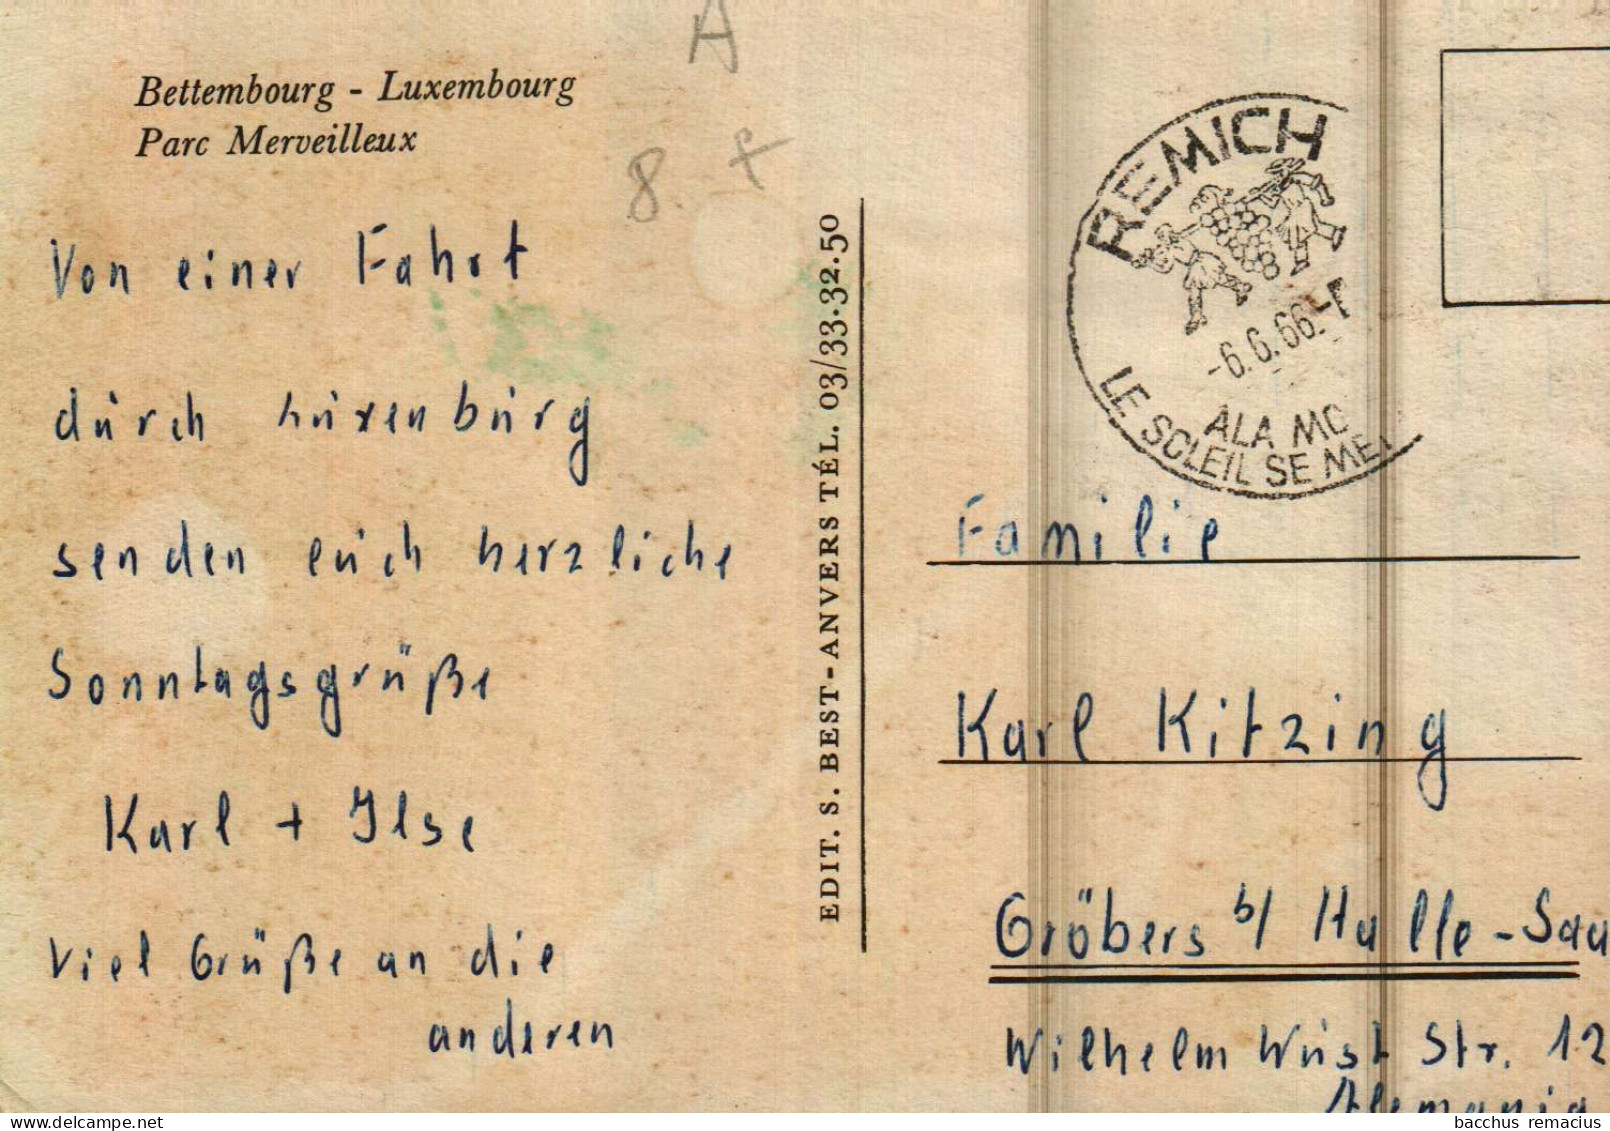 A
Bettembourg - Luxembourg
Parc Merveilleux
8. x
Von einer Fahrt
durch Luxenburg
senden euch herzliche
Sonntagsgrüße
Karl + Ilse
Viel Grüße an die
anderen
EDIT. S. BEST-ANVERS TÉL. 03/33.32.50
REMICH
-6.6.66.-
ALA MO
LE SOLEIL SE MET
Familie
Karl Kitzing
Gröbers b/ Halle-Saa
Wilhelm Wüst Str. 12
Alemania
bacchus remacius